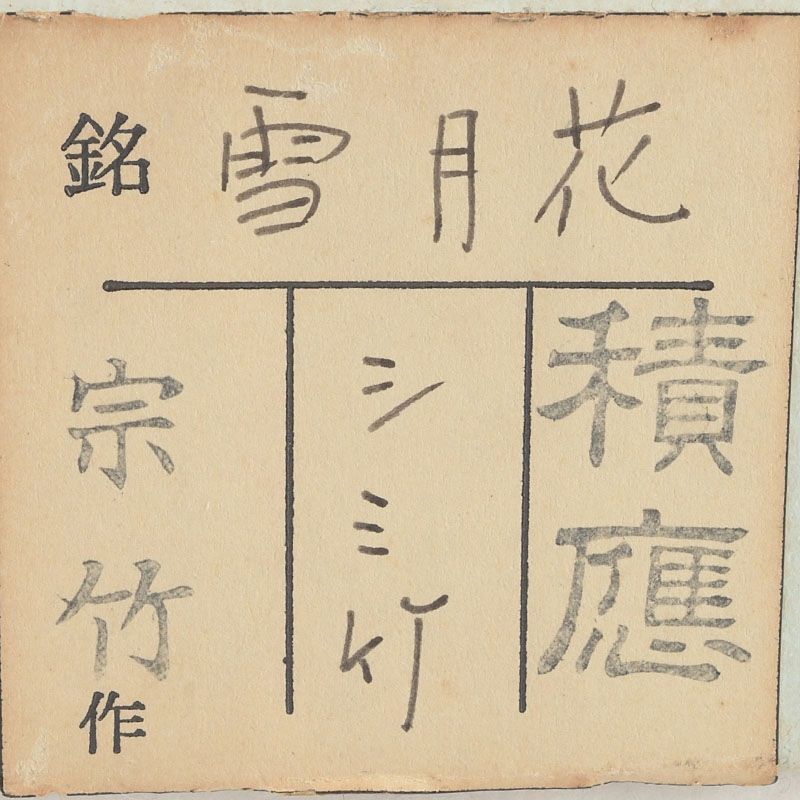 銘 雪月花
積應
シミ竹
宗竹作